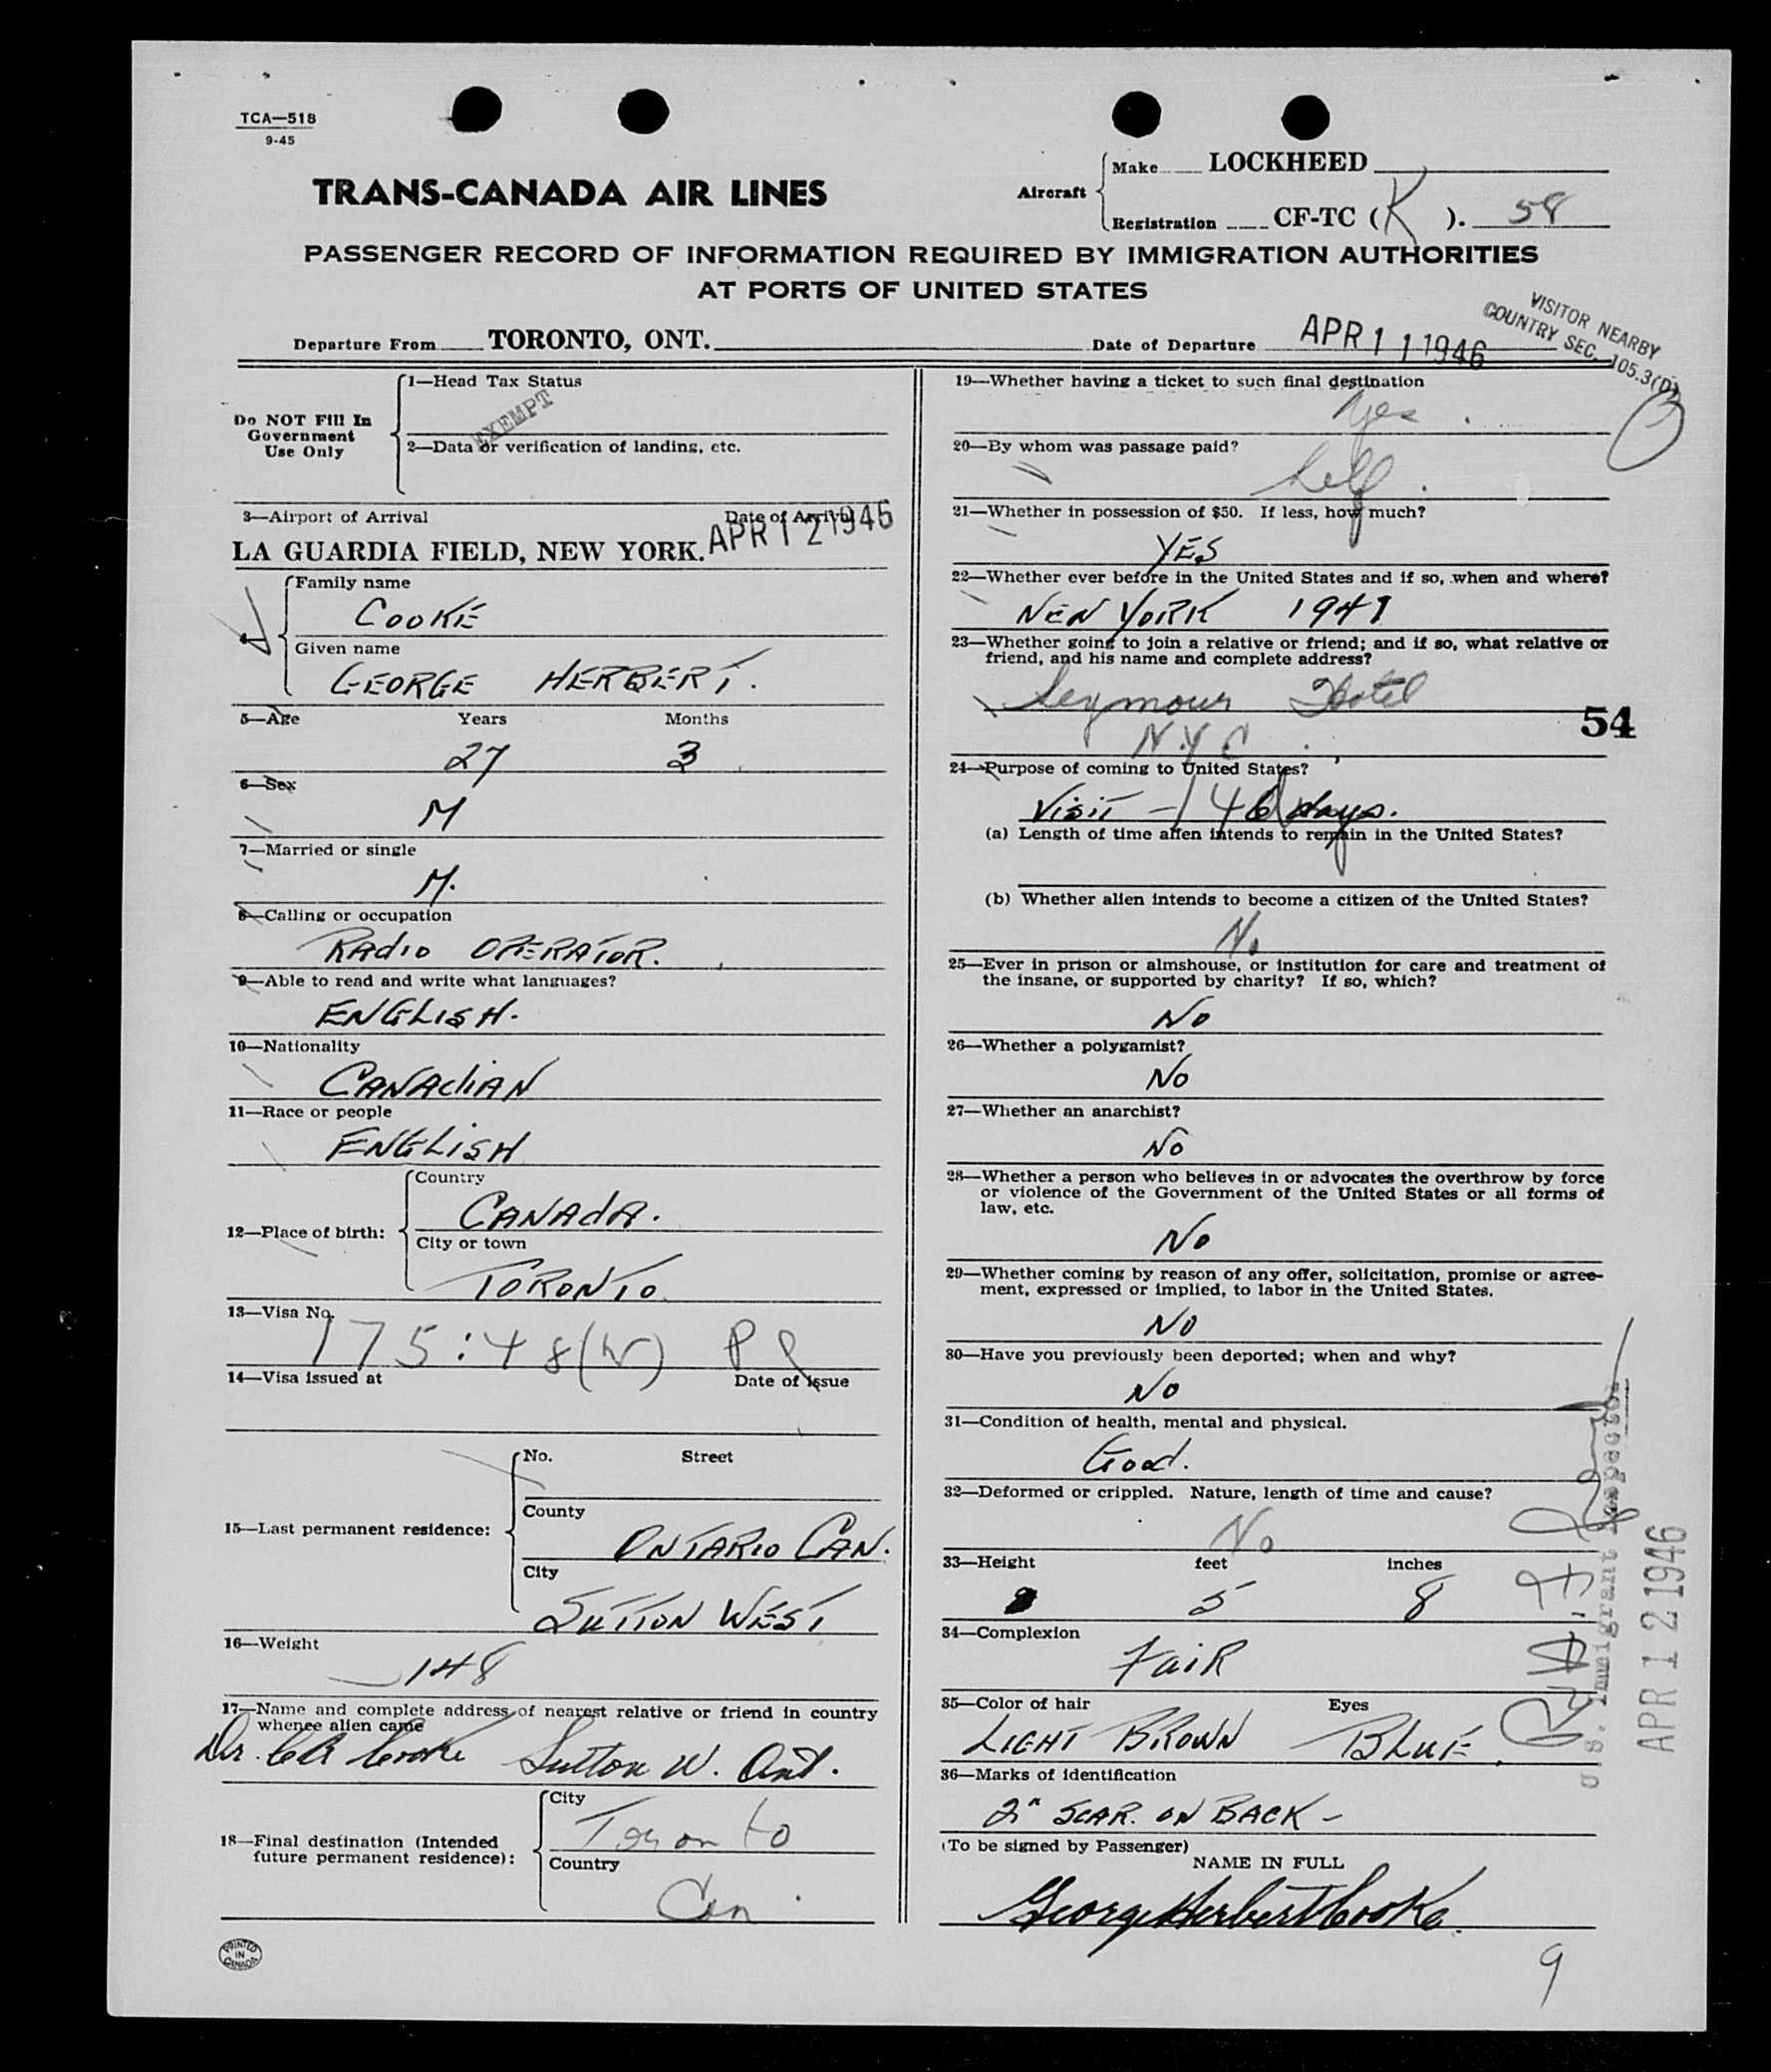 TCA—518
9-45
TRANS-CANADA AIR LINES
Aircraft
Make LOCKHEED
Registration CF-TC (K). 58
PASSENGER RECORD OF INFORMATION REQUIRED BY IMMIGRATION AUTHORITIES
AT PORTS OF UNITED STATES
VISITOR NEARBY
COUNTRY SEC. 105.3(D)
Departure From TORONTO, ONT.
Date of Departure APR 11 1946
Do NOT Fill In
Government
Use Only
1—Head Tax Status
EXEMPT
2—Data or verification of landing, etc.
3—Airport of Arrival Date of Arrival
LA GUARDIA FIELD, NEW YORK. APR 12 1946
4
Family name
COOKE
Given name
GEORGE HERBERT.
5—Age Years Months
27 3
6—Sex
M
7—Married or single
M.
8—Calling or occupation
RADIO OPERATOR.
9—Able to read and write what languages?
ENGLISH.
10—Nationality
CANADIAN
11—Race or people
ENGLISH
12—Place of birth:
Country
CANADA.
City or town
TORONTO
13—Visa No.
175:48(W) P
14—Visa issued at Date of issue
15—Last permanent residence:
No. Street
County
ONTARIO CAN.
City
SUTTON WEST
16—Weight
148
17—Name and complete address of nearest relative or friend in country
whence alien came
Dr. CA Cooke Sutton W. Ont.
18—Final destination (Intended
future permanent residence):
City
Toronto
Country
Can.
PRINTED
IN
CANADA
19—Whether having a ticket to such final destination
Yes.
20—By whom was passage paid?
Self.
21—Whether in possession of $50. If less, how much?
YES
22—Whether ever before in the United States and if so, when and where?
NEW YORK 1941
23—Whether going to join a relative or friend; and if so, what relative or
friend, and his name and complete address?
Seymour Hotel
54
N.Y.C.
24—Purpose of coming to United States?
Visit – days.
(a) Length of time alien intends to remain in the United States?
(b) Whether alien intends to become a citizen of the United States?
No
25—Ever in prison or almshouse, or institution for care and treatment of
the insane, or supported by charity? If so, which?
No
26—Whether a polygamist?
No
27—Whether an anarchist?
No
28—Whether a person who believes in or advocates the overthrow by force
or violence of the Government of the United States or all forms of
law, etc.
No
29—Whether coming by reason of any offer, solicitation, promise or agree-
ment, expressed or implied, to labor in the United States.
No
30—Have you previously been deported; when and why?
No
31—Condition of health, mental and physical.
Good.
32—Deformed or crippled. Nature, length of time and cause?
No
33—Height feet inches
5 8
34—Complexion
FAIR
35—Color of hair Eyes
LIGHT BROWN BLUE.
36—Marks of identification
2" SCAR. ON BACK –
(To be signed by Passenger)
NAME IN FULL
George Herbert Cooke.
9
U. S. Immigrant Inspector
APR 12 1946